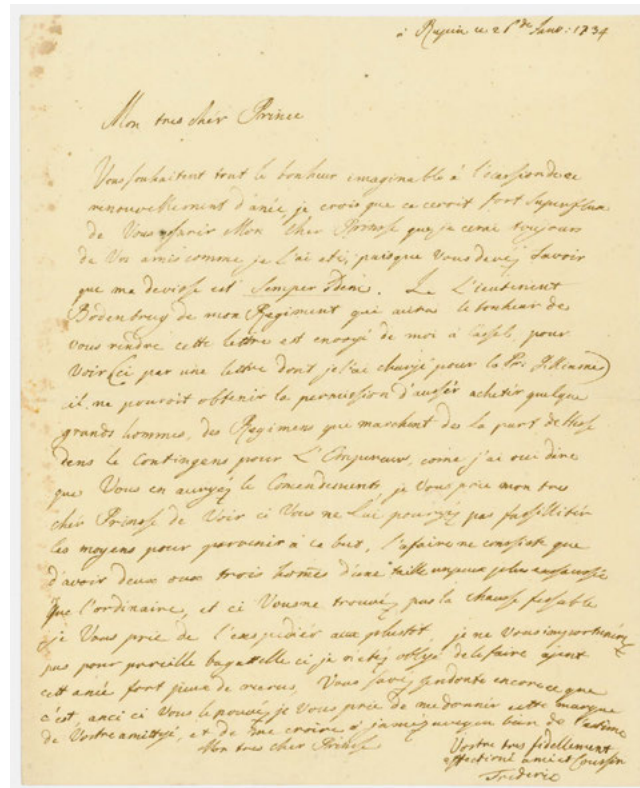 à Rupin ce 26 de Janv: 1734
Mon tres cher Prince
Vous souhaitent tout le bonheur imaginable à l'ocassion de ce
renouvellement d'anée, je crois que ce ceroit fort superflus
de Vous asurir Mon cher Prinsse que je cerai toujours
de Vos amis comme je l'ai eté, puisque Vous devez savoir
que ma devisse est Semper Idem. Le Lieutenent
Bodenbrug de mon Regiment qui auras le bonheur de
vous rendre cette lettre est envoyé de moi à Cassel, pour
Voir (ci par une lettre dont je l'ai charjé pour le Pr:
il ne pouroit obtenir la permission d'ausér achetir quelque
grands hommes, des Regimens que marchent de la part de Hesse
dens le Contingens pour L'Empereur, come j'ai oui dire
que Vous en auryéz le Comendement je Vous prie mon tres
cher Prinsse de Voir ci Vous ne Lui pouryez pas fassillitér
les moyens pour parvenir à ce but, l'afaire ne consiste que
d'avoir deux oux trois homes d'une taille unpeux plus
que l'ordinaire, et ci Vous ne trouvéz pas la chausse fesable
je Vous prie de l'enspidier aux plustôt, je ne Vous importunerez
pas pour pareille bagattelle ci je n'étés obligé de le faire ayent
cett anée fort peux de recrus, Vous savez sendoute encore ce que
c'est, ainci ci Vous le pouvéz je Vous prie de me donnér cette marque
de Vostre amittyé, et de me croire à jamés avec bien de l'estime
Mon tres cher Prinse
Vostre tres fidellement
affectioné ami et Coussin
Frederic